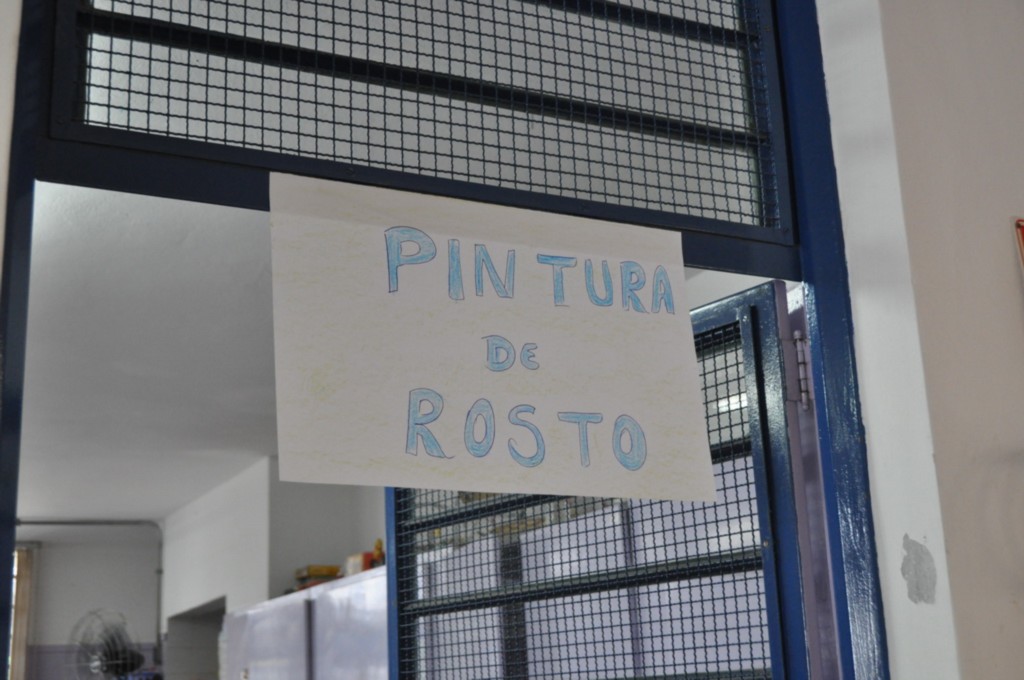 PINTURA
DE
ROSTO